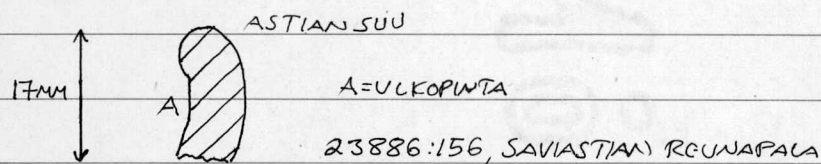 ASTIAN SUU
17MM
A
A=ULKOPINTA
23886:156, SAVIASTIAN REUNAPALA